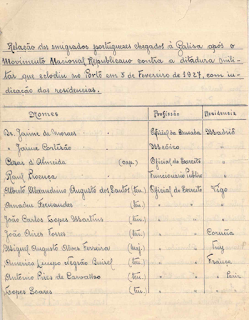 Relação dos emigrados portugueses chegados à Galisa após o
Movimento Nacional Republicano contra a ditadura mili-
tar que eclodiu no Porto em 3 de Fevereiro de 1927, com in-
dicação das residencias.
Nomes Profissão Residencia
Dr. Jaime de Moraes Oficial da Armada Madrid
" Jaime Cortesão Medico "
Cazas d'Almeida (cap.) Oficial do Exercito "
Raul Proença Funcionario Publico "
Alberto Maximino Augusto dos Santos (Ten.) Oficial do Exercito Vigo
Amadeu Fernandes (Ten.) " " "
João Carlos Lopes Martins (Ten.) " " "
João Pires Torres (Ten.) " " Coruña
Miguel Augusto Alves Ferreira (Maj.) " " Tuy
Americo (Ten.) " "
Antonio Pires de Carvalho (Ten.) " "
Lopes Soares (Ten.) " " "